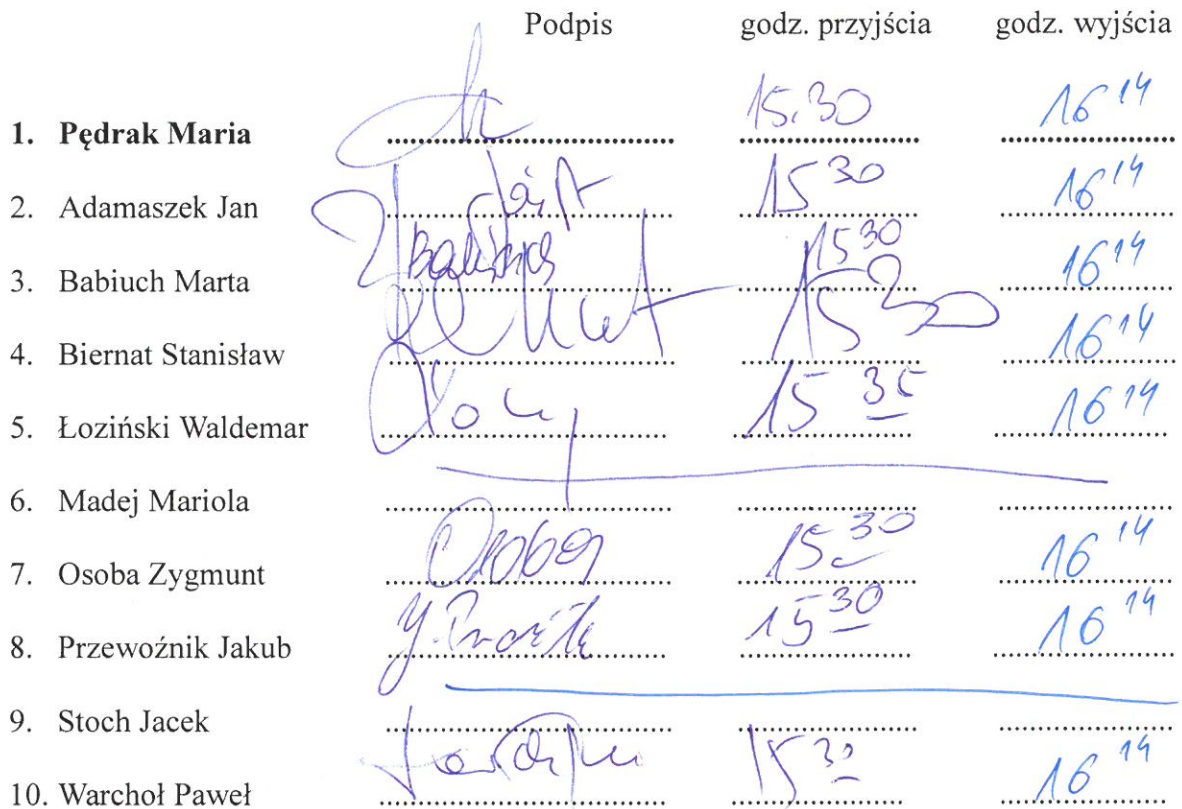 Podpis godz. przyjścia godz. wyjścia
1. Pędrak Maria 15.30 16 14
2. Adamaszek Jan 15 30 16 14
3. Babiuch Marta Babiuch 15 30 16 14
4. Biernat Stanisław 15 30 16 14
5. Łoziński Waldemar 15 35 16 14
6. Madej Mariola
7. Osoba Zygmunt Osoba 15 30 16 14
8. Przewoźnik Jakub 15 30 16 14
9. Stoch Jacek
10. Warchoł Paweł 15 30 16 14